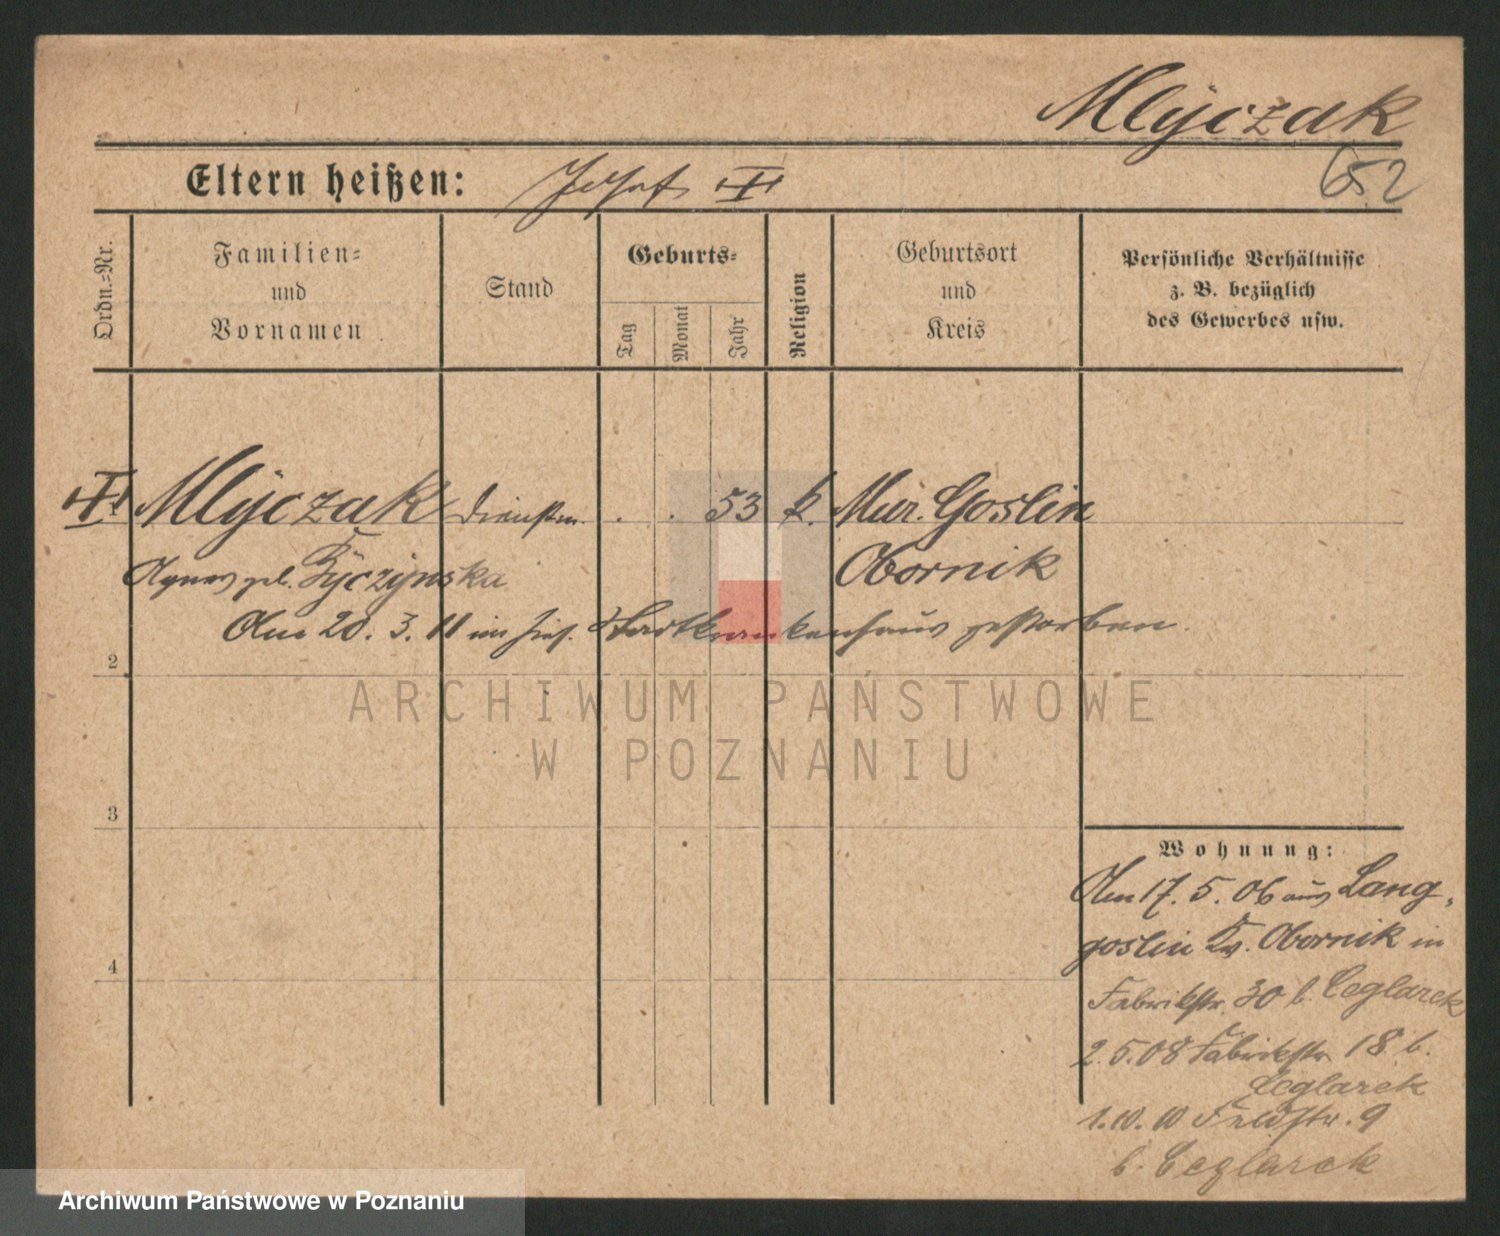 Mlyczak
652
Eltern heißen: Josef
Ordn.-Nr.
Familien-
und
Vornamen
Stand
Geburts-
Tag
Monat
Jahr
Religion
Geburtsort
und
Kreis
Persönliche Verhältnisse
z. B. bezüglich
des Gewerbes usw.
Mlyczak Dienstm. . . 53 k. Mur. Goslin
Agnes geb. Zyczynska Obornik
Am 20. 3. 11 im hies. Stadtkrankenhaus gestorben.
2
3
4
Wohnung:
Am 17. 5. 06 aus Lang-
goslin Kr. Obornik in
Fabrikstr. 30 b. Ceglarek
2.5.08 Fabrikstr. 18 b.
Ceglarek
1.10.10 Feldstr. 9
b. Ceglarek
ARCHIWUM PAŃSTWOWE
W POZNANIU
Archiwum Państwowe w Poznaniu